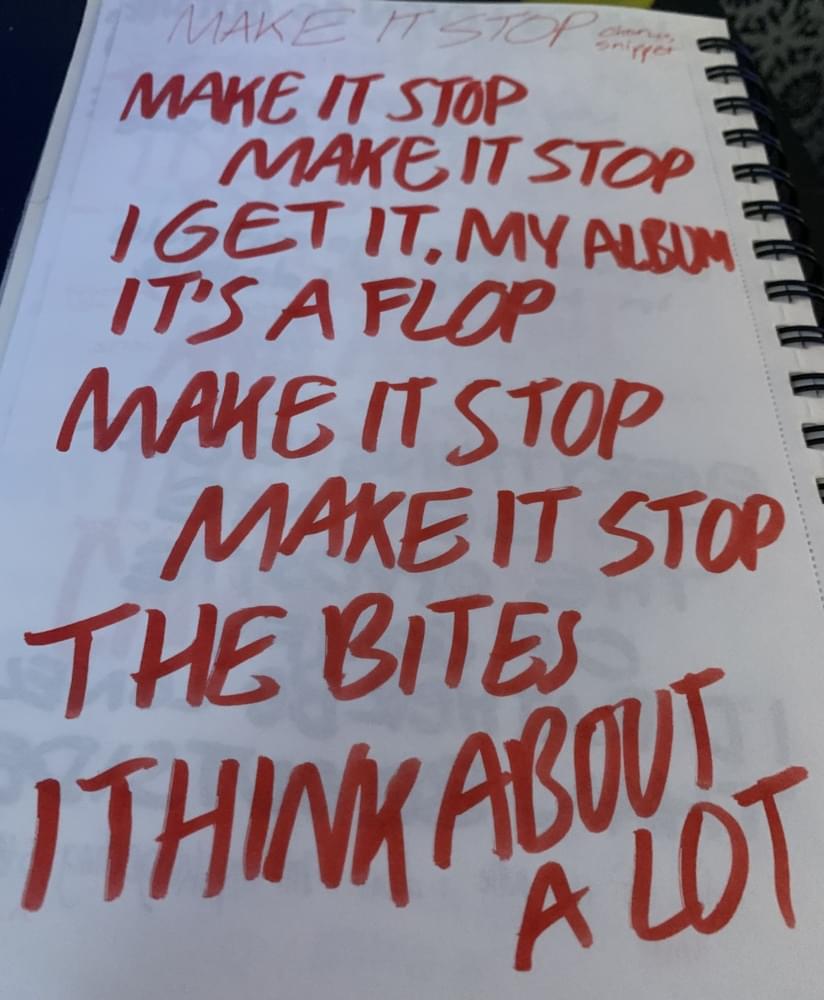 MAKE IT STOP chorus,
snippet
MAKE IT STOP
MAKE IT STOP
I GET IT, MY ALBUM
IT'S A FLOP
MAKE IT STOP
MAKE IT STOP
THE BITES
I THINK ABOUT
A LOT